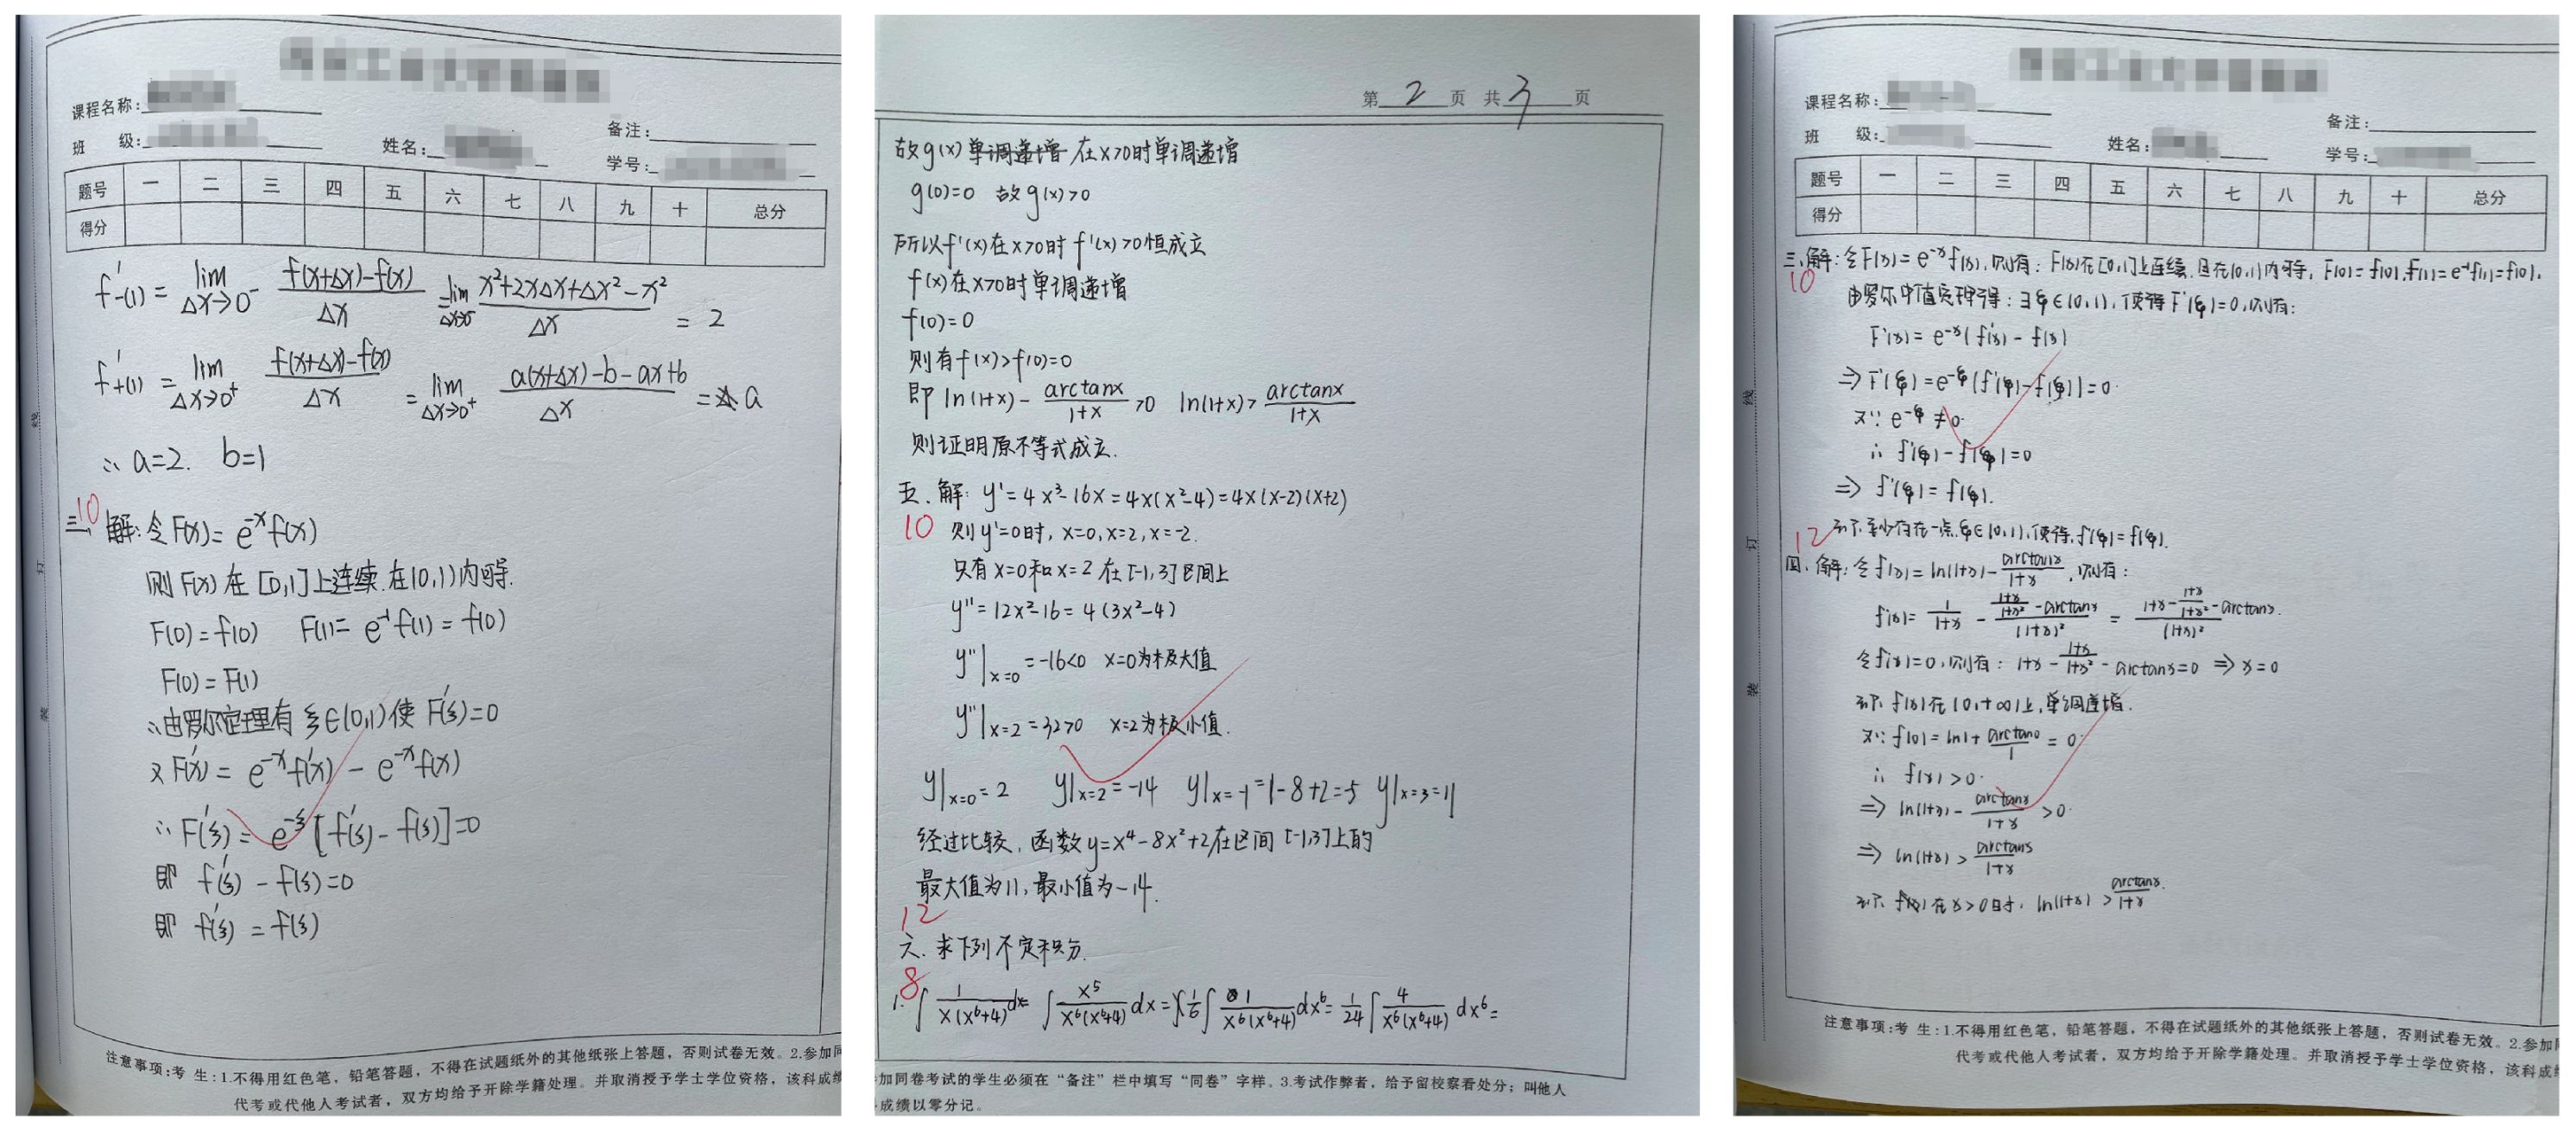 课程名称:
备注:
班 级:
姓名:
学号:
题号 一 二 三 四 五 六 七 八 九 十 总分
得分
f'-(1) = lim Δx→0⁻ (f(x+Δx)-f(x))/Δx = lim Δx→0⁻ (x²+2xΔx+Δx²-x²)/Δx = 2
f'+(1) = lim Δx→0⁺ (f(x+Δx)-f(x))/Δx = lim Δx→0⁺ (a(x+Δx)-b-ax+b)/Δx = a
∴ a=2. b=1
10
三、解:令F(x)= e^-x f(x)
则F(x)在[0,1]上连续.在(0,1)内可导.
F(0)=f(0) F(1)= e^-1 f(1) = f(0)
F(0)=F(1)
∴由罗尔定理有ξ∈(0,1)使F'(ξ)=0
又F'(x)= e^-x f'(x) - e^-x f(x)
∴F'(ξ)= e^-ξ [f'(ξ)-f(ξ)]=0
即 f'(ξ)-f(ξ)=0
即 f'(ξ) = f(ξ)
注意事项:考 生:1.不得用红色笔,铅笔答题,不得在试题纸外的其他纸张上答题,否则试卷无效。2.参加同
代考或代他人考试者,双方均给予开除学籍处理。并取消授予学士学位资格,该科成绩
线
订
装
第 2 页 共 3 页
故g(x)单调递增 在x>0时单调递增
g(0)=0 故g(x)>0
所以f'(x)在x>0时 f'(x)>0恒成立
f(x)在x>0时单调递增
f(0)=0
则有f(x)>f(0)=0
即 ln(1+x) - arctanx/(1+x) >0 ln(1+x)> arctanx/(1+x)
则证明原不等式成立.
五.解: y'=4x³-16x=4x(x²-4)=4x(x-2)(x+2)
10 则y'=0时, x=0,x=2,x=-2.
只有x=0和x=2在[-1,3]区间上
y''=12x²-16=4(3x²-4)
y''|x=0 =-16<0 x=0为极大值
y''|x=2 =32>0 x=2为极小值.
y|x=0=2 y|x=2=-14 y|x=-1=1-8+2=-5 y|x=3=11
经过比较,函数y=x⁴-8x²+2在区间[-1,3]上的
最大值为11,最小值为-14.
12
六.求下列不定积分.
8
1. ∫ 1/(x(x⁶+4)) dx= ∫ x⁵/(x⁶(x⁶+4)) dx = 1/6 ∫ 1/(x⁶(x⁶+4)) dx⁶ = 1/24 ∫ 4/(x⁶(x⁶+4)) dx⁶ =
加同卷考试的学生必须在“备注”栏中填写“同卷”字样。3.考试作弊者,给予留校察看处分;叫他人
成绩以零分记。
课程名称:
备注:
班 级:
姓名:
学号:
题号 一 二 三 四 五 六 七 八 九 十 总分
得分
三.解:令F(x)=e^-x f(x),则有:F(x)在[0,1]上连续.且在(0,1)内可导, F(0)=f(0),F(1)=e^-1 f(1)=f(0),
10
由罗尔中值定理得:∃ξ∈(0,1),使得F'(ξ)=0,则有:
F'(x)=e^-x(f'(x)-f(x))
⇒F'(ξ)=e^-ξ[f'(ξ)-f(ξ)]=0.
又∵ e^-ξ ≠0.
∴ f'(ξ)-f(ξ)=0
⇒ f'(ξ)=f(ξ).
至少存在一点ξ∈(0,1),使得,f'(ξ)=f(ξ).
12
四、解:令f(x)=ln(1+x)- arctanx/(1+x) ,则有:
f'(x)= 1/(1+x) - ((1+x)/(1+x²) -arctanx)/(1+x)² = (1+x-(1+x)/(1+x²) -arctanx)/(1+x)².
令f'(x)=0,则有: 1+x-(1+x)/(1+x²) -arctanx=0 ⇒ x=0
f(x)在(0,+∞)上,单调递增.
又∵ f(0)=ln1+ arctan0/1 =0.
∴ f(x)>0.
⇒ ln(1+x)- arctanx/(1+x) >0.
⇒ ln(1+x)> arctanx/(1+x)
f(x)在x>0时, ln(1+x) > arctanx/(1+x).
注意事项:考 生:1.不得用红色笔,铅笔答题,不得在试题纸外的其他纸张上答题,否则试卷无效。2.参加
代考或代他人考试者,双方均给予开除学籍处理。并取消授予学士学位资格,该科成
线
订
装